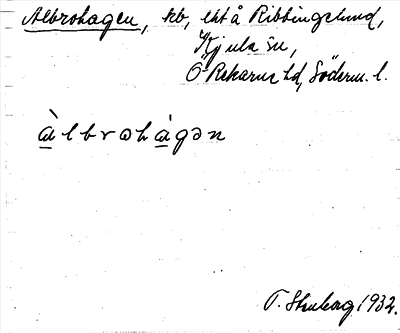 Albrohagen, hb, ligt å Ribbingelund,
Kjula sn,
Ö Rekarne hd, Söderm. l.
a̠̍lbrɷha̠̍gən
T. Stenborg 1932.